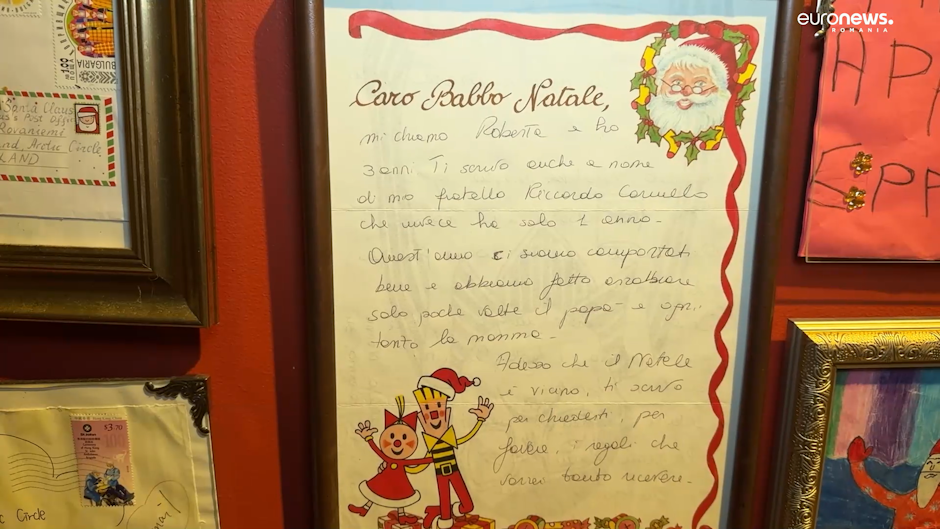 euronews.
ROMANIA
BULGARIA
Santa Claus
Rovaniemi
Arctic Circle
LAND
Caro Babbo Natale,
mi chiamo Roberta e ho
3 anni. Ti scrivo anche a nome
di mio fratello Riccardo Carmelo
che invece ha solo 1 anno.
Quest'anno ci siamo comportati
bene e abbiamo fatto arrabbiare
solo poche volte il papà e ogni
tanto la mamma.
Adesso che il Natale
è vicino, ti scrivo
per chiederti, per
favore, i regali che
vorrei tanto ricevere.
APP
EPP
$3.70
Circle